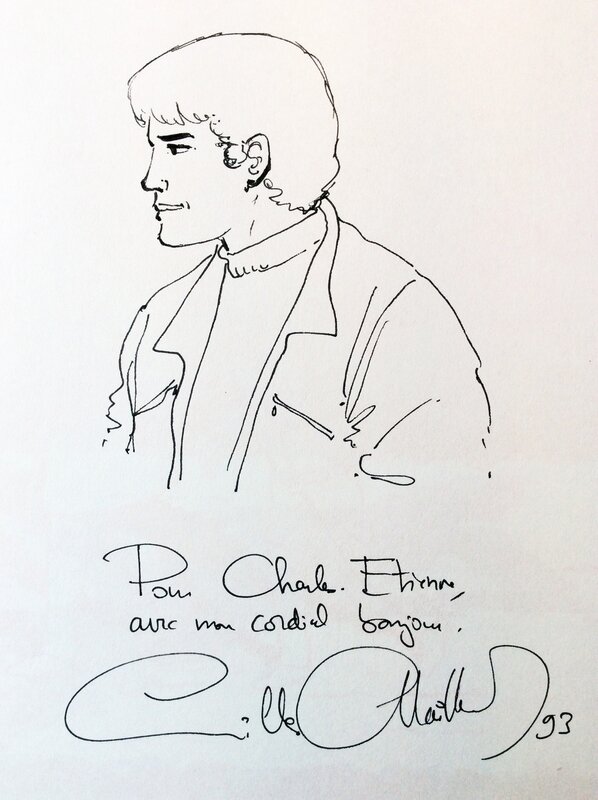 Pour Charles-Etienne,
avec mon cordial bonjour.
Gilles Chaillet 93